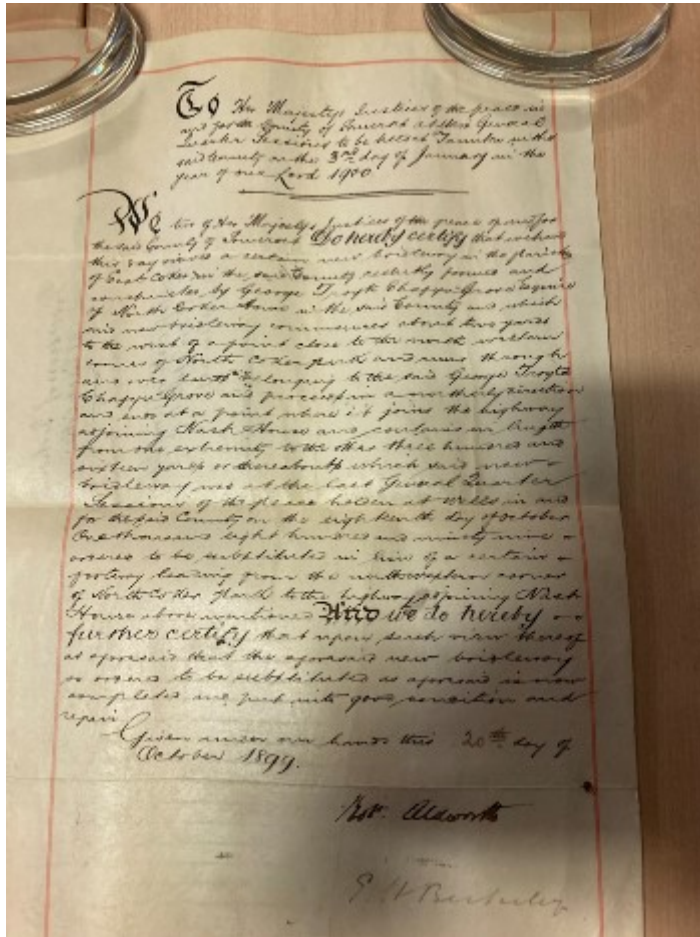 To Her Majesty's Justices of the peace in
and for the County of Somerset at their General
Quarter Sessions to be held at Taunton in the
said County on the 3rd day of January in the
year of our Lord 1900
We two of Her Majesty's Justices of the peace in and for
the said County of Somerset Do hereby certify that we have
this day viewed a certain new bridleway in the parish
of East Coker in the said County recently formed and
constructed by George Troyte Chafyn Grove Esquire
of North Coker House in the said County and which
said new bridleway commences about two yards
to the west of a point close to the north western
corner of North Coker Park and runs through
and over lands belonging to the said George Troyte
Chafyn Grove and proceeds in a northerly direction
and ends at a point where it joins the highway
adjoining Nash House and contains in length
from one extremity to the other three hundred and
sixteen yards or thereabouts which said new
bridleway was at the last General Quarter
Sessions of the peace holden at Wells in and
for the said County on the eighteenth day of October
One thousand eight hundred and ninety nine
ordered to be substituted in lieu of a certain
footway leading from the north western corner
of North Coker Park to the highway adjoining Nash
House above mentioned And we do hereby
further certify that upon such view thereof
as aforesaid that the aforesaid new bridleway
so ordered to be substituted as aforesaid is now
completed and put into good condition and
repair
Given under our hands this 20th day of
October 1899.
Robt. Aldworth